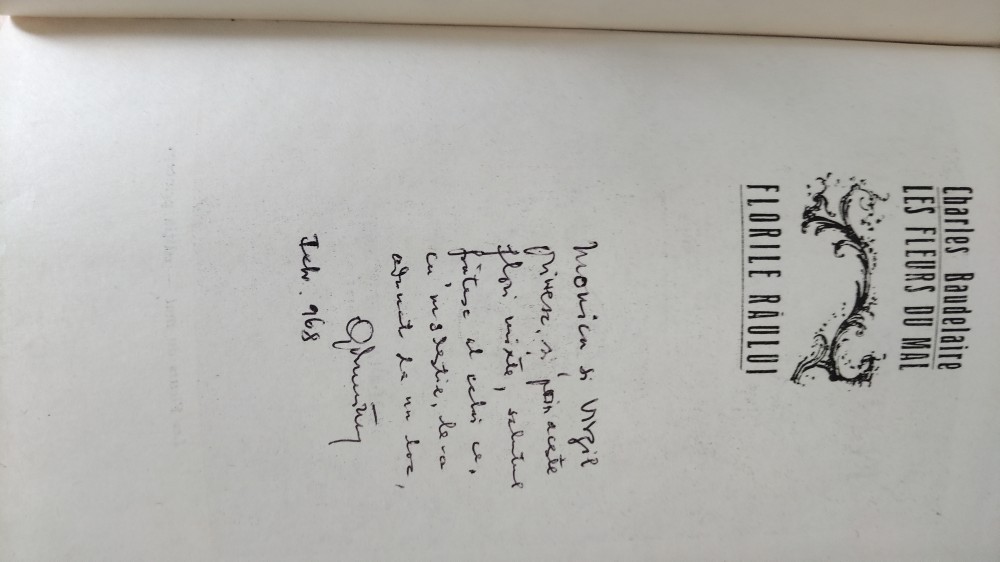 Charles Baudelaire
LES FLEURS DU MAL
FLORILE RĂULUI
Monica și Virgil
primesc, și prin aceste
flori mixte, salutul
frățesc al celui ce,
cu modestie, le-a
adunat la un loc,
Febr. 968